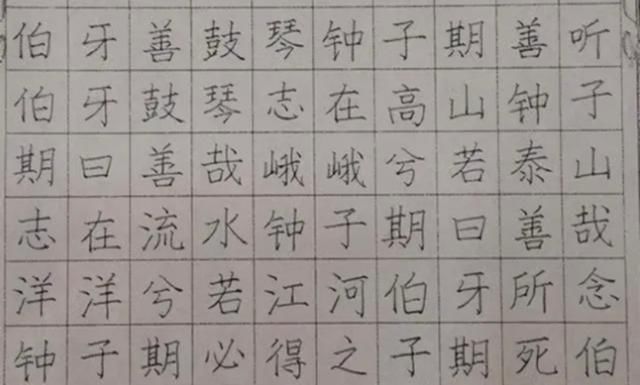 伯牙善鼓琴钟子期善听
伯牙鼓琴志在高山钟子
期曰善哉峨峨兮若泰山
志在流水钟子期曰善哉
洋洋兮若江河伯牙所念
钟子期必得之子期死伯